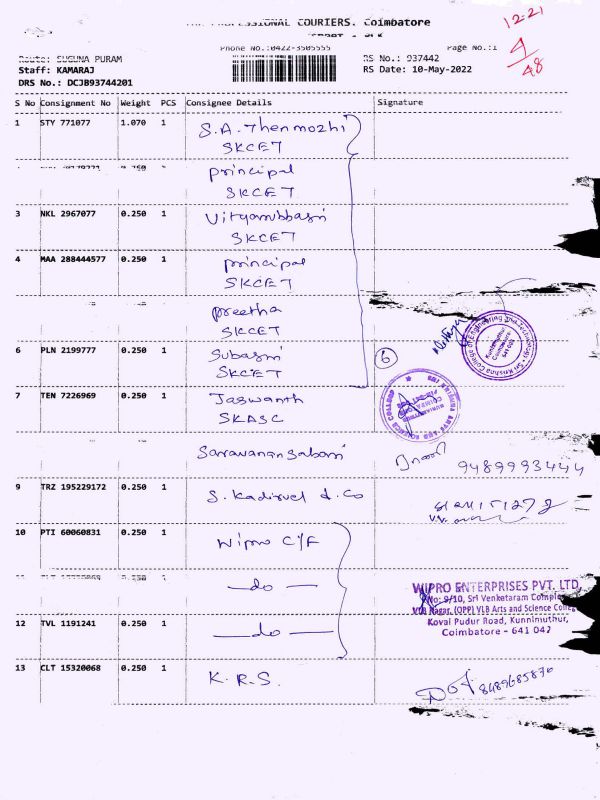 PROFESSIONAL COURIERS. Coimbatore
12-21
4/48
Phone No.:0422-3505555
Page No.:1
Route: SUGUNA PURAM
RS No.: 937442
Staff: KAMARAJ
RS Date: 10-May-2022
DRS No.: DCJB93744201
S No Consignment No Weight PCS Consignee Details Signature
1 STY 771077 1.070 1 S.A. Thenmozhi
SKCET
principal
SKCET
3 NKL 2967077 0.250 1
SKCET
4 MAA 288444577 0.250 1 principal
SKCET
preetha
SKCET
6 PLN 2199777 0.250 1 Subasri
SKCET
6
Sri Krishna College of Engineering and Technology
Kuniamuthur
Coimbatore
641 008
7 TEN 7226969 0.250 1 Jaswanth
SKASC
SRI KRISHNA ARTS AND SCIENCE COLLEGE
9489993444
9 TRZ 195229172 0.250 1 S. Kadirvel & Co
10 PTI 60060831 0.250 1 Wipro C/F
— do —
WIPRO ENTERPRISES PVT. LTD,
No: 9/10, Sri Venketaram Complex
VLB Nagar, (OPP) VLB Arts and Science College
Kovai Pudur Road, Kunnimuthur,
Coimbatore - 641 042
12 TVL 1191241 0.250 1 — do —
13 CLT 15320068 0.250 1 K.R.S.
8489685876